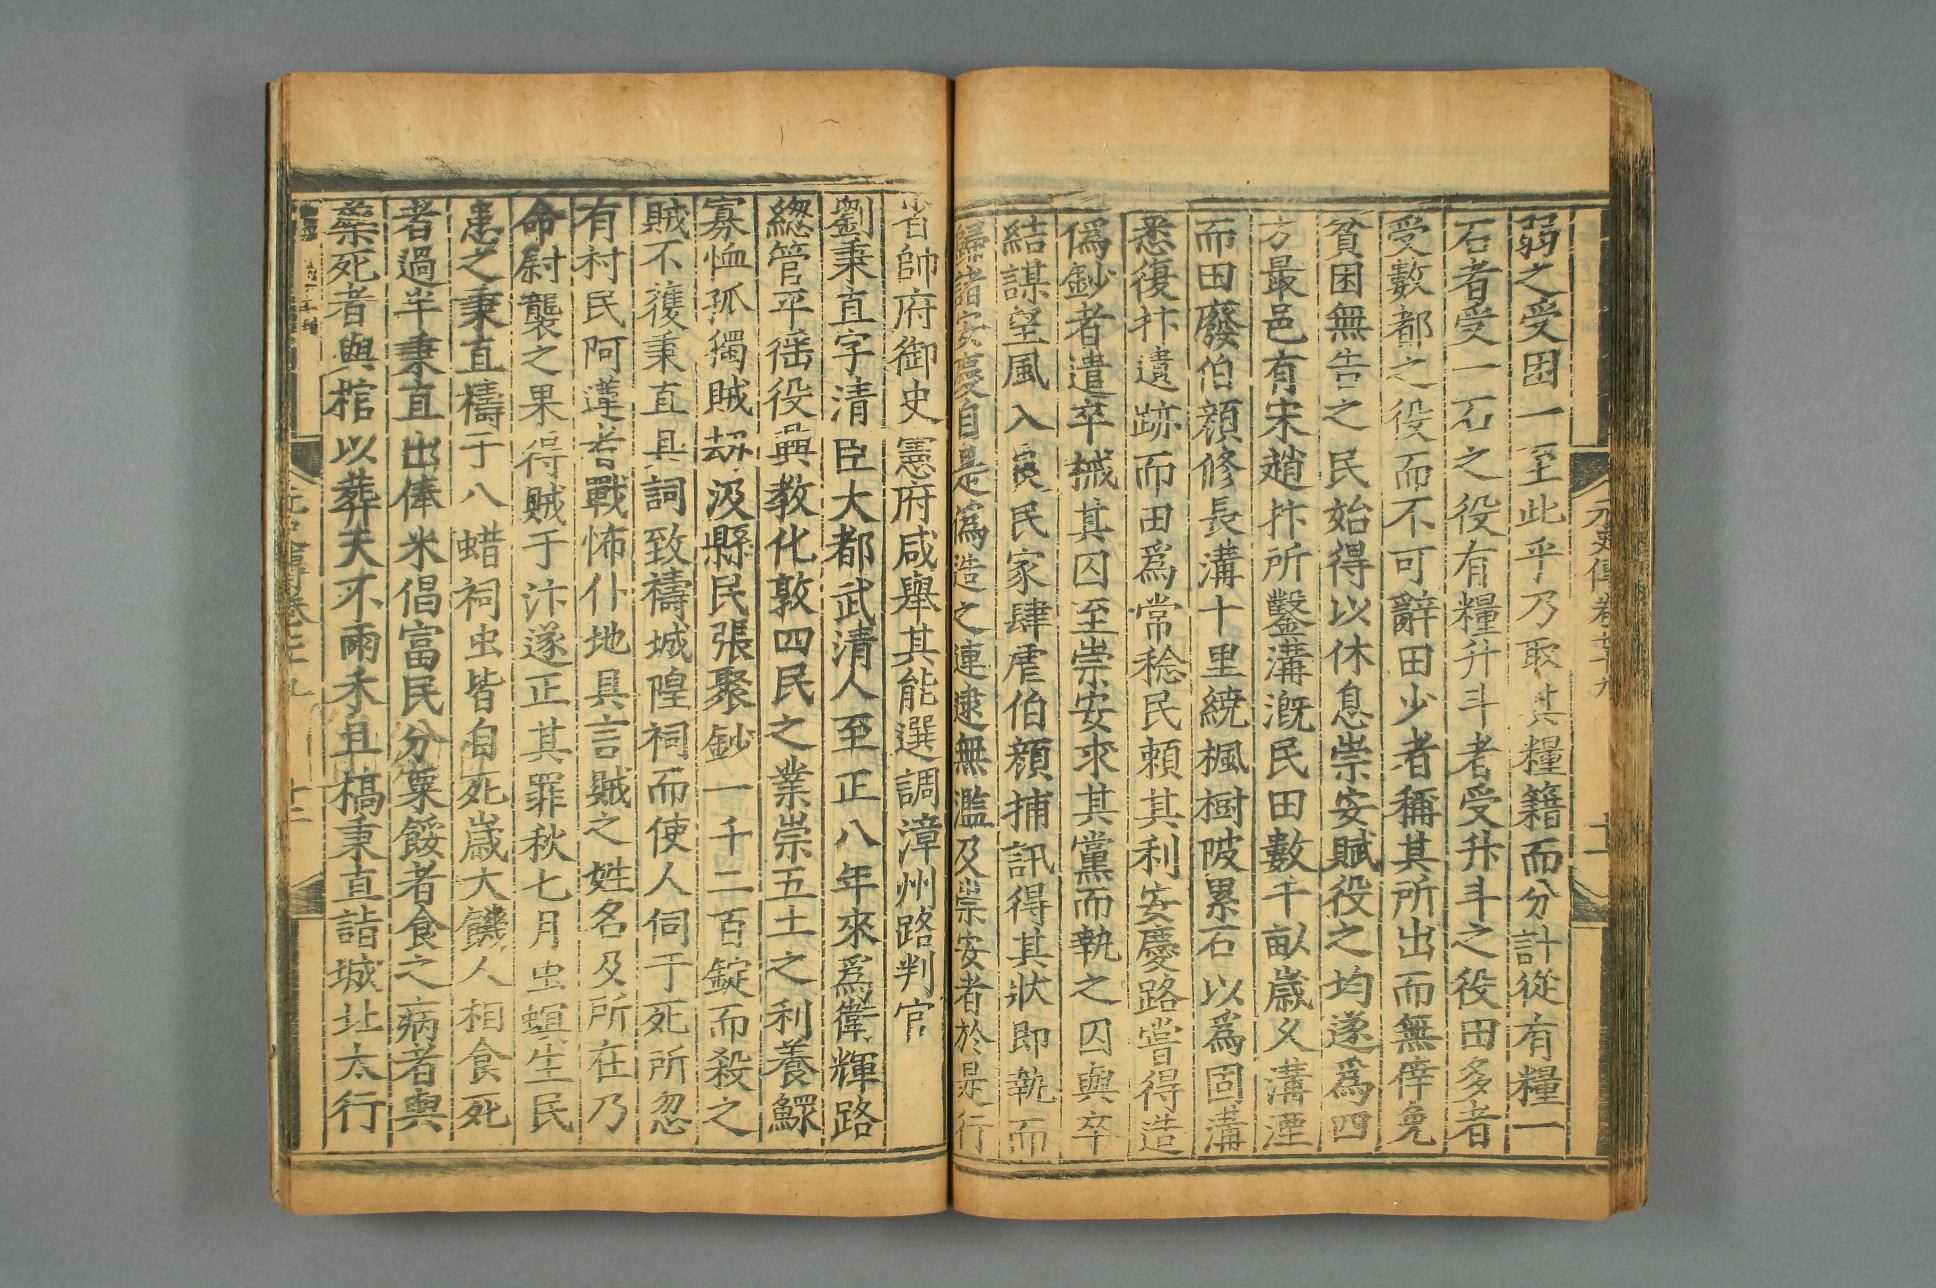 元史傳卷七十九
十一
弱之受困一至此乎乃取其糧籍而分計從有糧一
石者受一石之役有糧升斗者受升斗之役田多者
受數都之役而不可辭田少者稱其所出而無倖免
貧困無告之民始得以休息崇安賦役之均遂爲四
方最邑有宋趙抃所鑿溝漑民田數千畝歲久溝湮
而田廢伯顔修長溝十里繞楓樹陂累石以爲固溝
悉復抃遺跡而田爲常稔民賴其利安慶路嘗得造
僞鈔者遣卒械其囚至崇安求其黨而執之囚與卒
結謀望風入良民家肆虐伯顔捕訊得其狀即執而
歸諸安慶自是僞造之連逮無濫及崇安者於是行
省帥府御史憲府咸舉其能選調漳州路判官
劉秉直字清臣大都武清人至正八年來爲衛輝路
緫管平徭役興教化敦四民之業崇五土之利養鰥
寡恤孤獨賊刼汲縣民張聚鈔一千二百錠而殺之
賊不獲秉直具詞致禱城隍祠而使人伺于死所忽
有村民阿蓮者戰怖仆地具言賊之姓名及所在乃
命尉襲之果得賊于汴遂正其罪秋七月虫螟生民
患之秉直禱于八蜡祠虫皆自死歲大饑人相食死
者過半秉直出俸米倡富民分粟餒者食之病者與
藥死者與棺以葬天不雨禾且槁秉直詣城北太行
元史傳卷七十九
十二